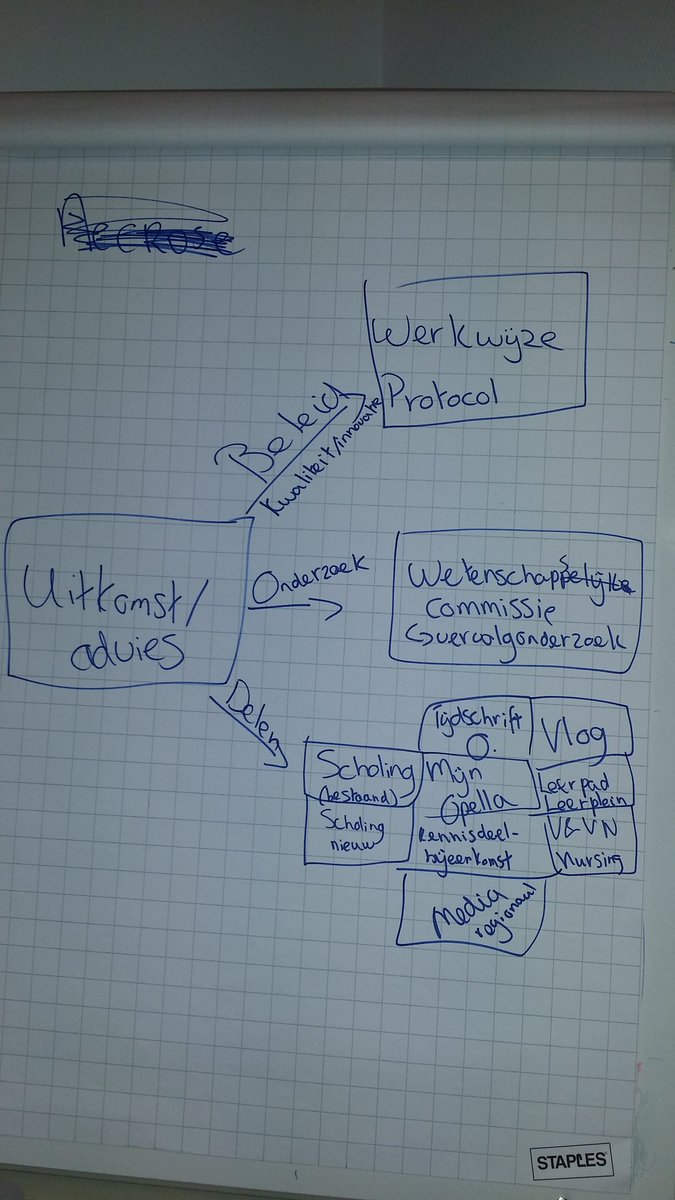 Necrose
Werkwijze
Protocol
Beleid
Kwaliteit/innovatie
Uitkomst/
advies
Onderzoek
Wetenschaps
commissie
↳vervolgonderzoek
Delen
Tijdschrift
O.
Vlog
Scholing
(bestaand)
Mijn
Opella
Leerpad
Leerplein
Scholing
nieuw
Kennisdeel-
bijeenkomst
V&VN
Nursing
Media
regionaal
STAPLES